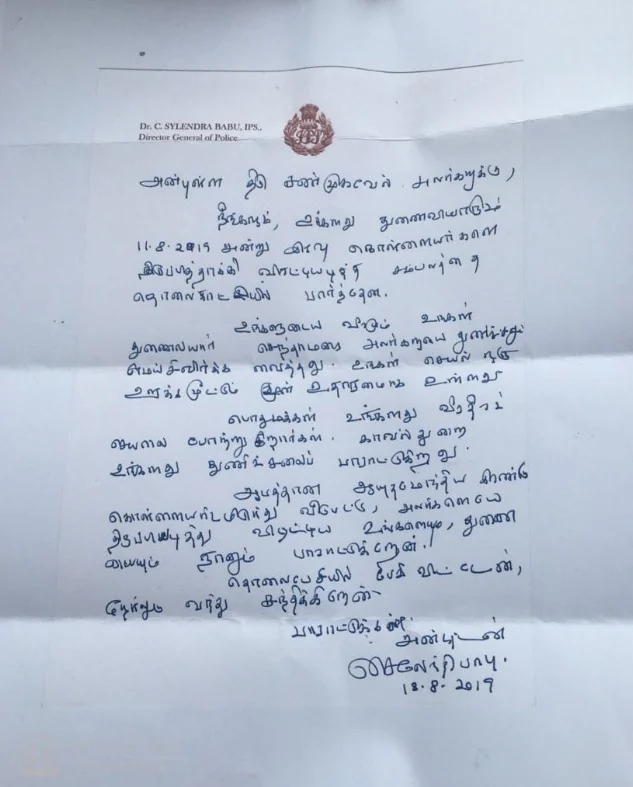 Dr. C. SYLENDRA BABU, IPS.,
Director General of Police
அன்புள்ள திரு சண்முகவேல் அவர்களுக்கு,
நீங்களும், உங்களது துணைவியாரும்
11.8.2019 அன்று இரவு கொள்ளையர்களை
விரட்டியடித்த சம்பவத்தை
தொலைகாட்சியில் பார்த்தேன்.
உங்களுடைய வீரமும் உங்கள்
துணைவியார் செந்தாமரை அவர்களுடைய துணிச்சலும்
மெய்சிலிர்க்க வைத்தது. உங்கள் செயல் ஒரு
ஊக்கமூட்டும் முன் உதாரணமாக உள்ளது
பொதுமக்கள் உங்களது வீரதீரச்
செயலை போற்றுகிறார்கள். காவல் துறை
உங்களது துணிச்சலைப் பாராட்டுகிறது.
ஆபத்தான ஆயுதமேந்திய இரண்டு
கொள்ளையரிடமிருந்து விடுபட்டு, அவர்களையே
விரட்டிய உங்களையும், துணை
யையும் நானும் பாராட்டுகிறேன்.
தொலைபேசியில் பேசி விட்டேன்,
நேரிலும் வந்து சந்திக்கிறேன்
பாராட்டுக்கள்.
அன்புடன்
சைலேந்திரபாபு.
13.8.2019